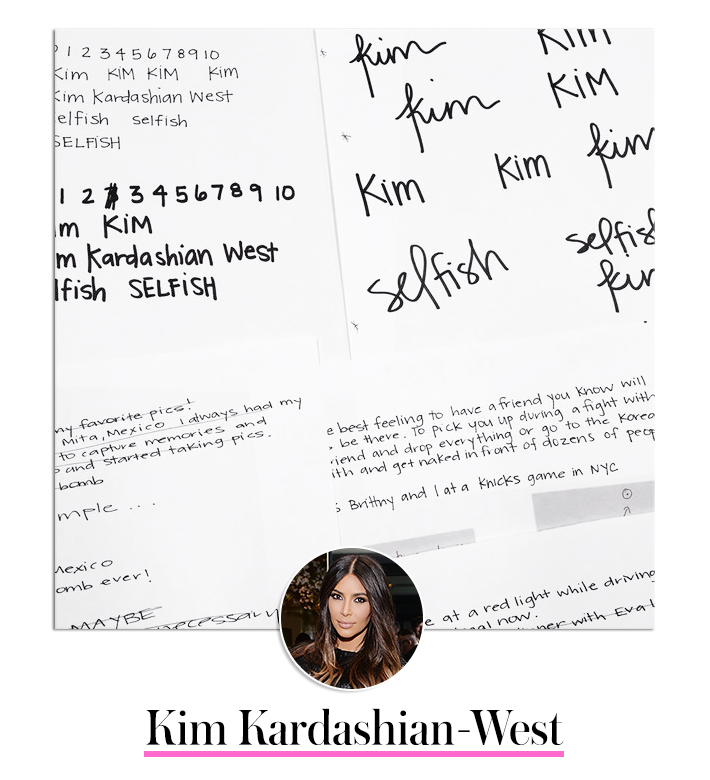 1 2 3 4 5 6 7 8 9 10
Kim KIM KIM Kim
Kim Kardashian West
selfish selfish
SELFISH
1 2 3 4 5 6 7 8 9 10
im KiM
m Kardashian West
lfish SELFiSH
kim
KiM
kim
KiM
Kim
Kim
kim
selfish
selfis
kin
my favorite pics!
Mita, Mexico I always had my
to capture memories and
and started taking pics.
bomb
mple ...
Mexico
omb ever!
MAYBE
e best feeling to have a friend you know will
be there. To pick you up during a fight with
riend and drop everything or go to the Korea
ith and get naked in front of dozens of peop
s Brittny and I at a Knicks game in NYC
e at a red light while driving
now.
with Eva
Kim Kardashian-West